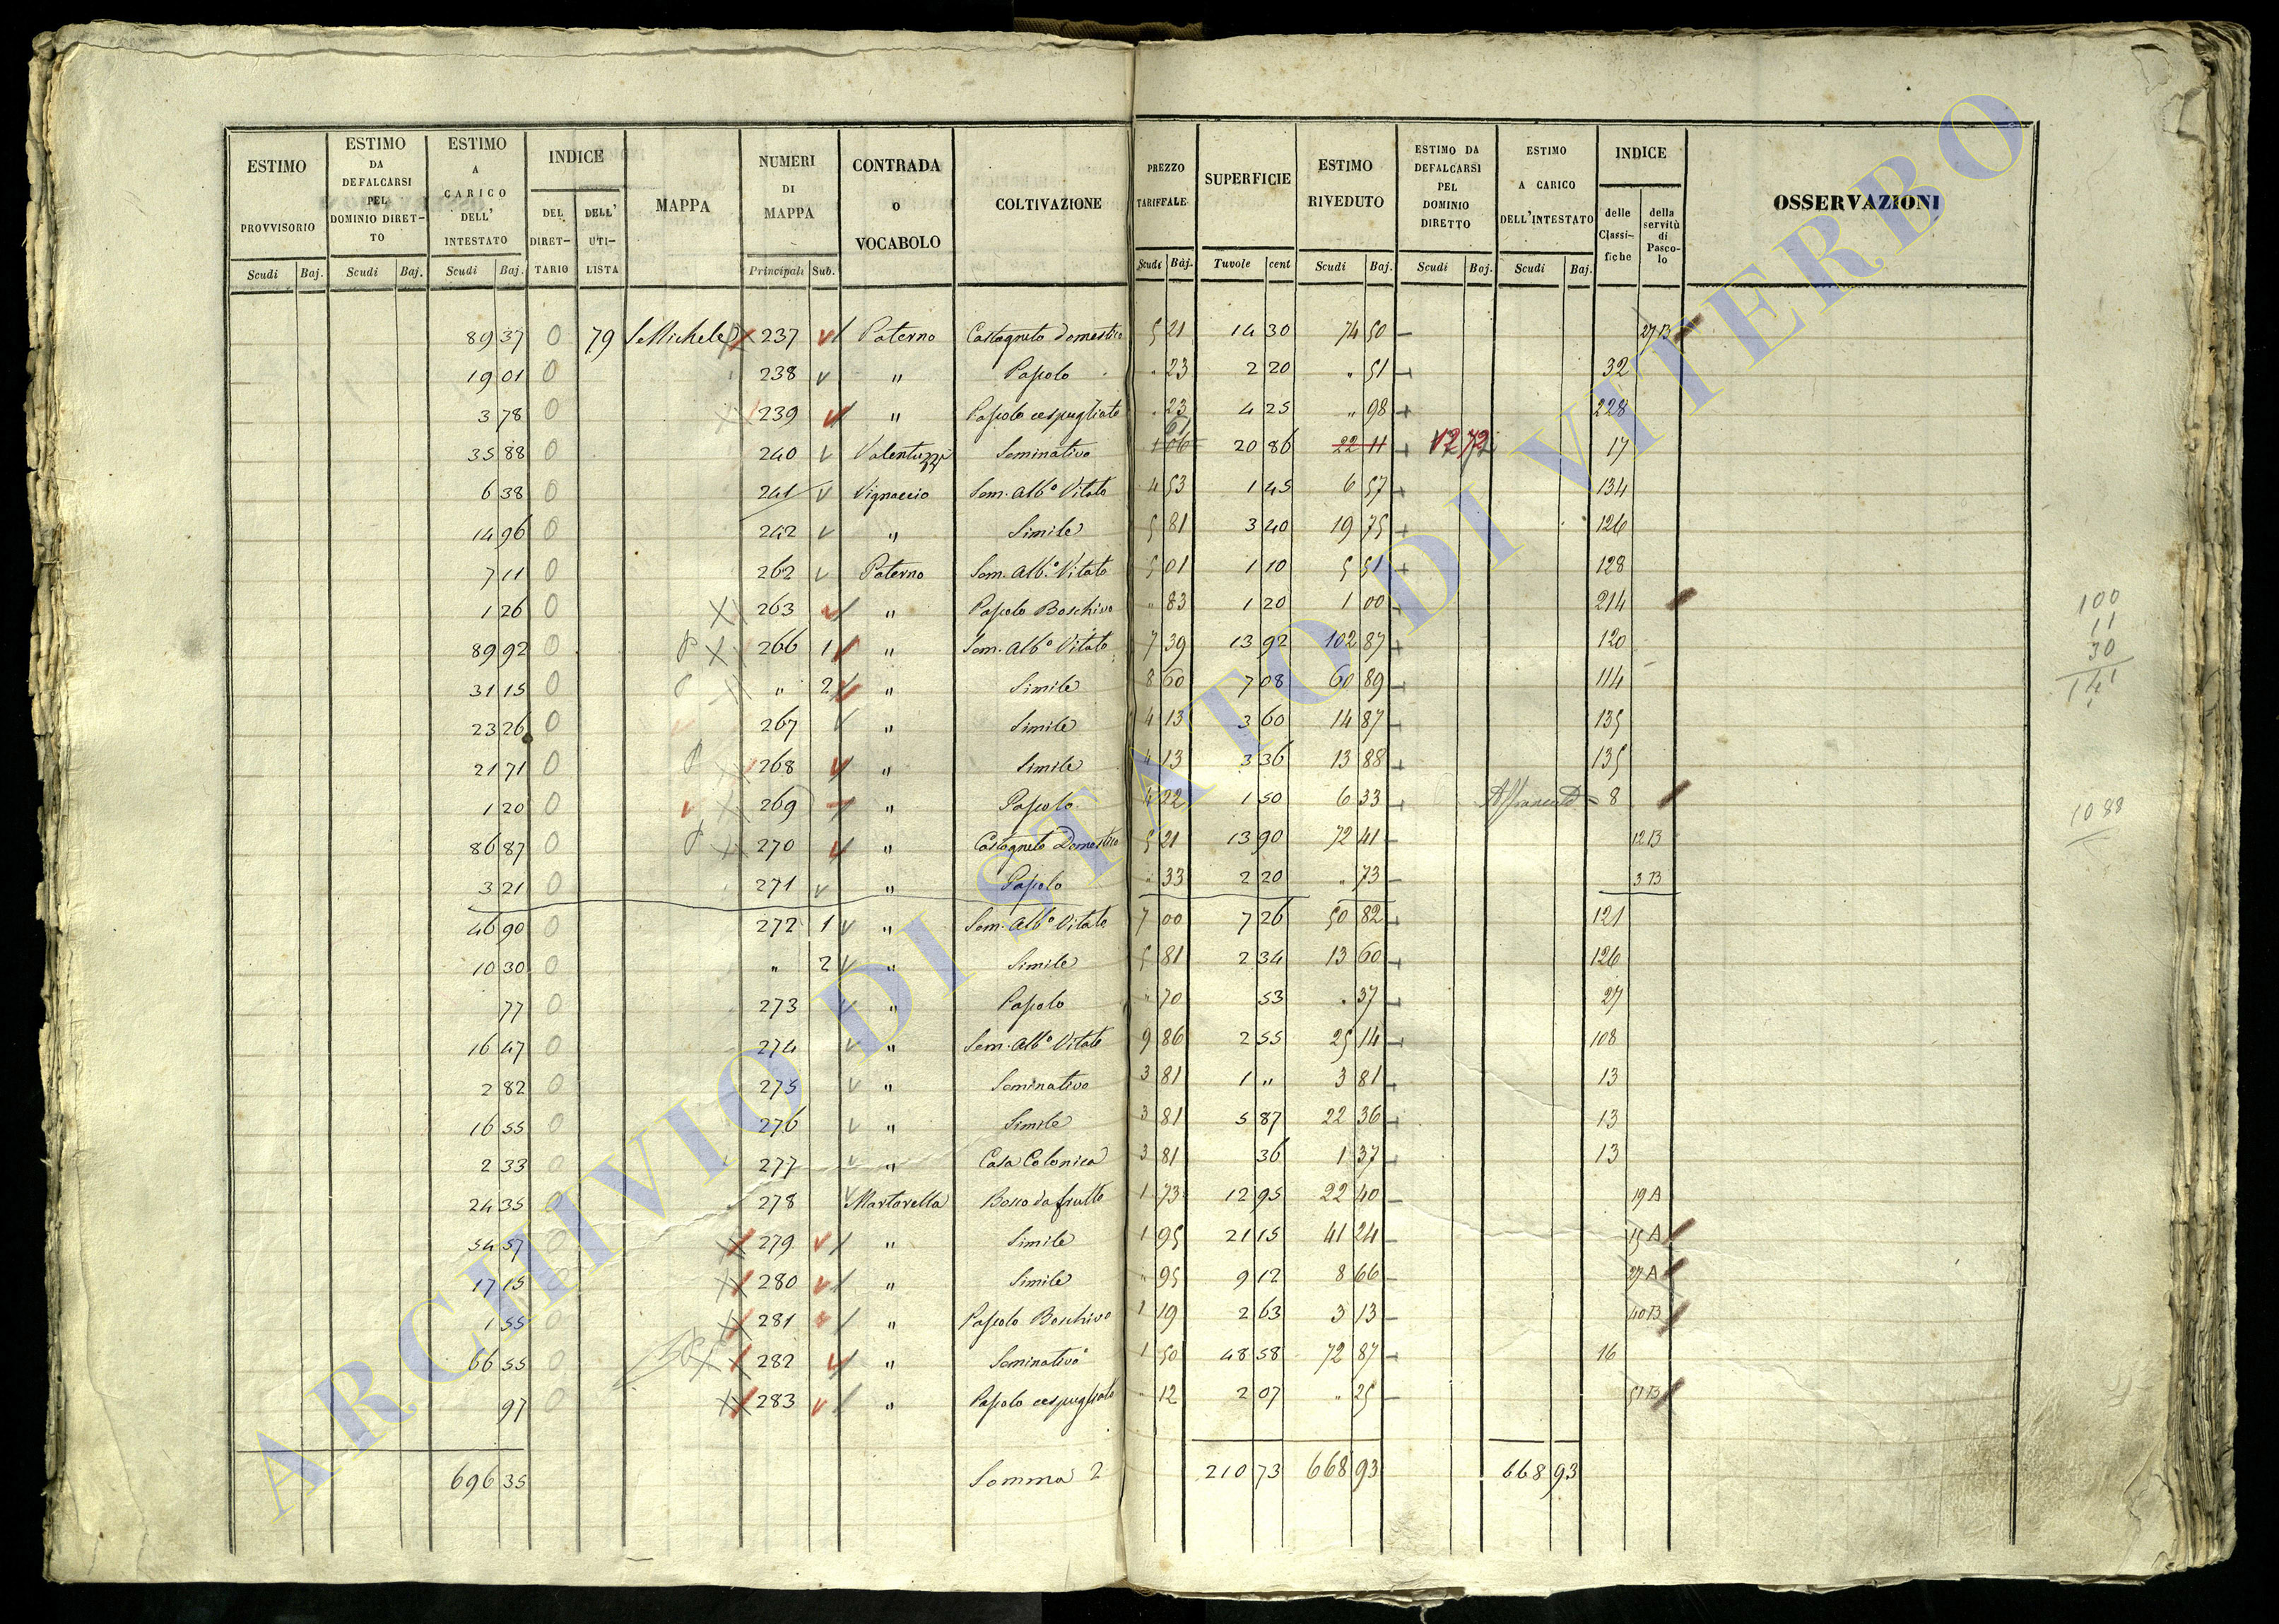 ESTIMO PROVVISORIO Scudi Baj.
ESTIMO DA DEFALCARSI PEL DOMINIO DIRET-TO Scudi Baj.
ESTIMO A CARICO DELL' INTESTATO Scudi Baj.
INDICE DEL DIRET-TARIO DELL' UTI-LISTA
MAPPA
NUMERI DI MAPPA Principali Sub.
CONTRADA o VOCABOLO
COLTIVAZIONE
PREZZO TARIFFALE Scudi Baj.
SUPERFICIE Tuvole cent
ESTIMO RIVEDUTO Scudi Baj.
ESTIMO DA DEFALCARSI PEL DOMINIO DIRETTO Scudi Baj.
ESTIMO A CARICO DELL'INTESTATO Scudi Baj.
INDICE delle Classi-fiche della servitù di Pasco-lo
OSSERVAZIONI
89 37 0 79 S. Michele 237 Paterno Castagneto domestico 5 21 14 30 74 50 27 B
19 01 0 238 " Pascolo " 23 2 20 " 51 32
3 78 0 239 " Pascolo cespugliato " 23 4 25 " 98 228
35 88 0 240 Valentuzzi Seminativo 1 06 61 20 86 22 11 12 72 17
6 38 0 241 Vignaccio Sem. Alb.º Vitato 4 53 1 45 6 57 134
14 96 0 242 " Simile 5 81 3 40 19 75 126
7 11 0 262 Paterno Sem. Alb.º Vitato 5 01 1 10 5 51 128
1 26 0 263 " Pascolo Boschivo " 83 1 20 1 00 214
89 92 0 266 1 " Sem. Alb.º Vitato 7 39 13 92 102 87 120
31 15 0 " 2 " Simile 8 60 7 08 60 89 114
23 26 0 267 " Simile 4 13 3 60 14 87 135
21 71 0 268 " Simile 4 13 3 36 13 88 135
1 20 0 269 " Pascolo 4 22 1 50 6 33 8
86 87 0 270 " Castagneto Domestico 5 21 13 90 72 41 12 B
3 21 0 271 " Pascolo " 33 2 20 " 73 3 B
46 90 0 272 1 " Sem. Alb.º Vitato 7 00 7 26 50 82 121
10 30 0 " 2 " Simile 5 81 2 34 13 60 126
77 0 273 " Pascolo " 70 53 " 37 27
16 47 0 274 " Sem. Alb.º Vitato 9 86 2 55 25 14 108
2 82 0 275 " Seminativo 3 81 1 " 3 81 13
16 55 0 276 " Simile 3 81 5 87 22 36 13
2 33 0 277 " Casa Colonica 3 81 36 1 37 13
24 35 0 278 Martarella Bosco da frutto 1 73 12 95 22 40 19 A
54 57 0 279 " Simile 1 95 21 15 41 24 15 A
17 15 0 280 " Simile " 95 9 12 8 66 27 A
1 55 0 281 " Pascolo Boschivo 1 19 2 63 3 13 40 B
66 55 0 282 " Seminativo 1 50 48 58 72 87 16
97 0 283 " Pascolo cespugliato " 12 2 07 " 25 51 B
696 35 Somma 2 210 73 668 93 668 93
100
11
30
141
1088
ARCHIVIO DI STATO DI VITERBO